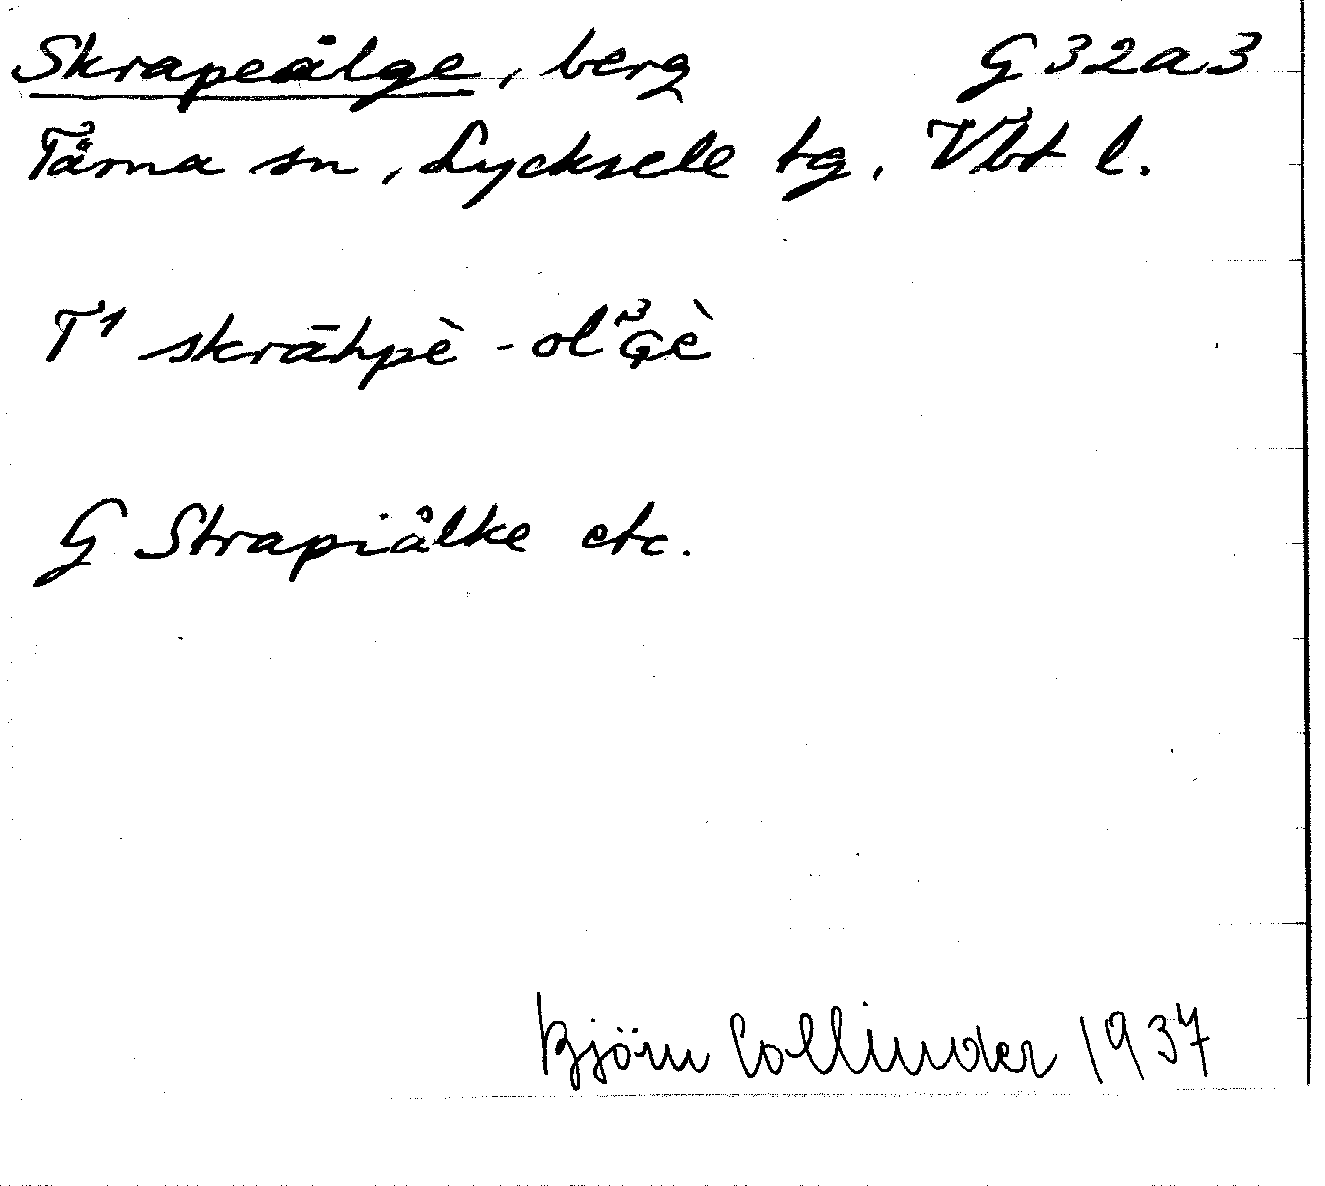 Skrapeålge, berg G32a3
Tärna sn, Lycksele tg, Vbt l.
T1 skrāhpè - ol
G Strapiålke etc.
Björn Collinder 1937